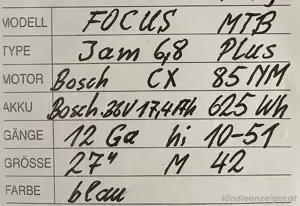 MODELL FOCUS MTB
TYPE Jam 6,8 Plus
MOTOR Bosch CX 85 NM
AKKU Bosch 36V 17,4Ah 625 Wh
GÄNGE 12 Ga hi 10-51
GRÖSSE 27" M 42
FARBE blau
ländleanzeiger.at